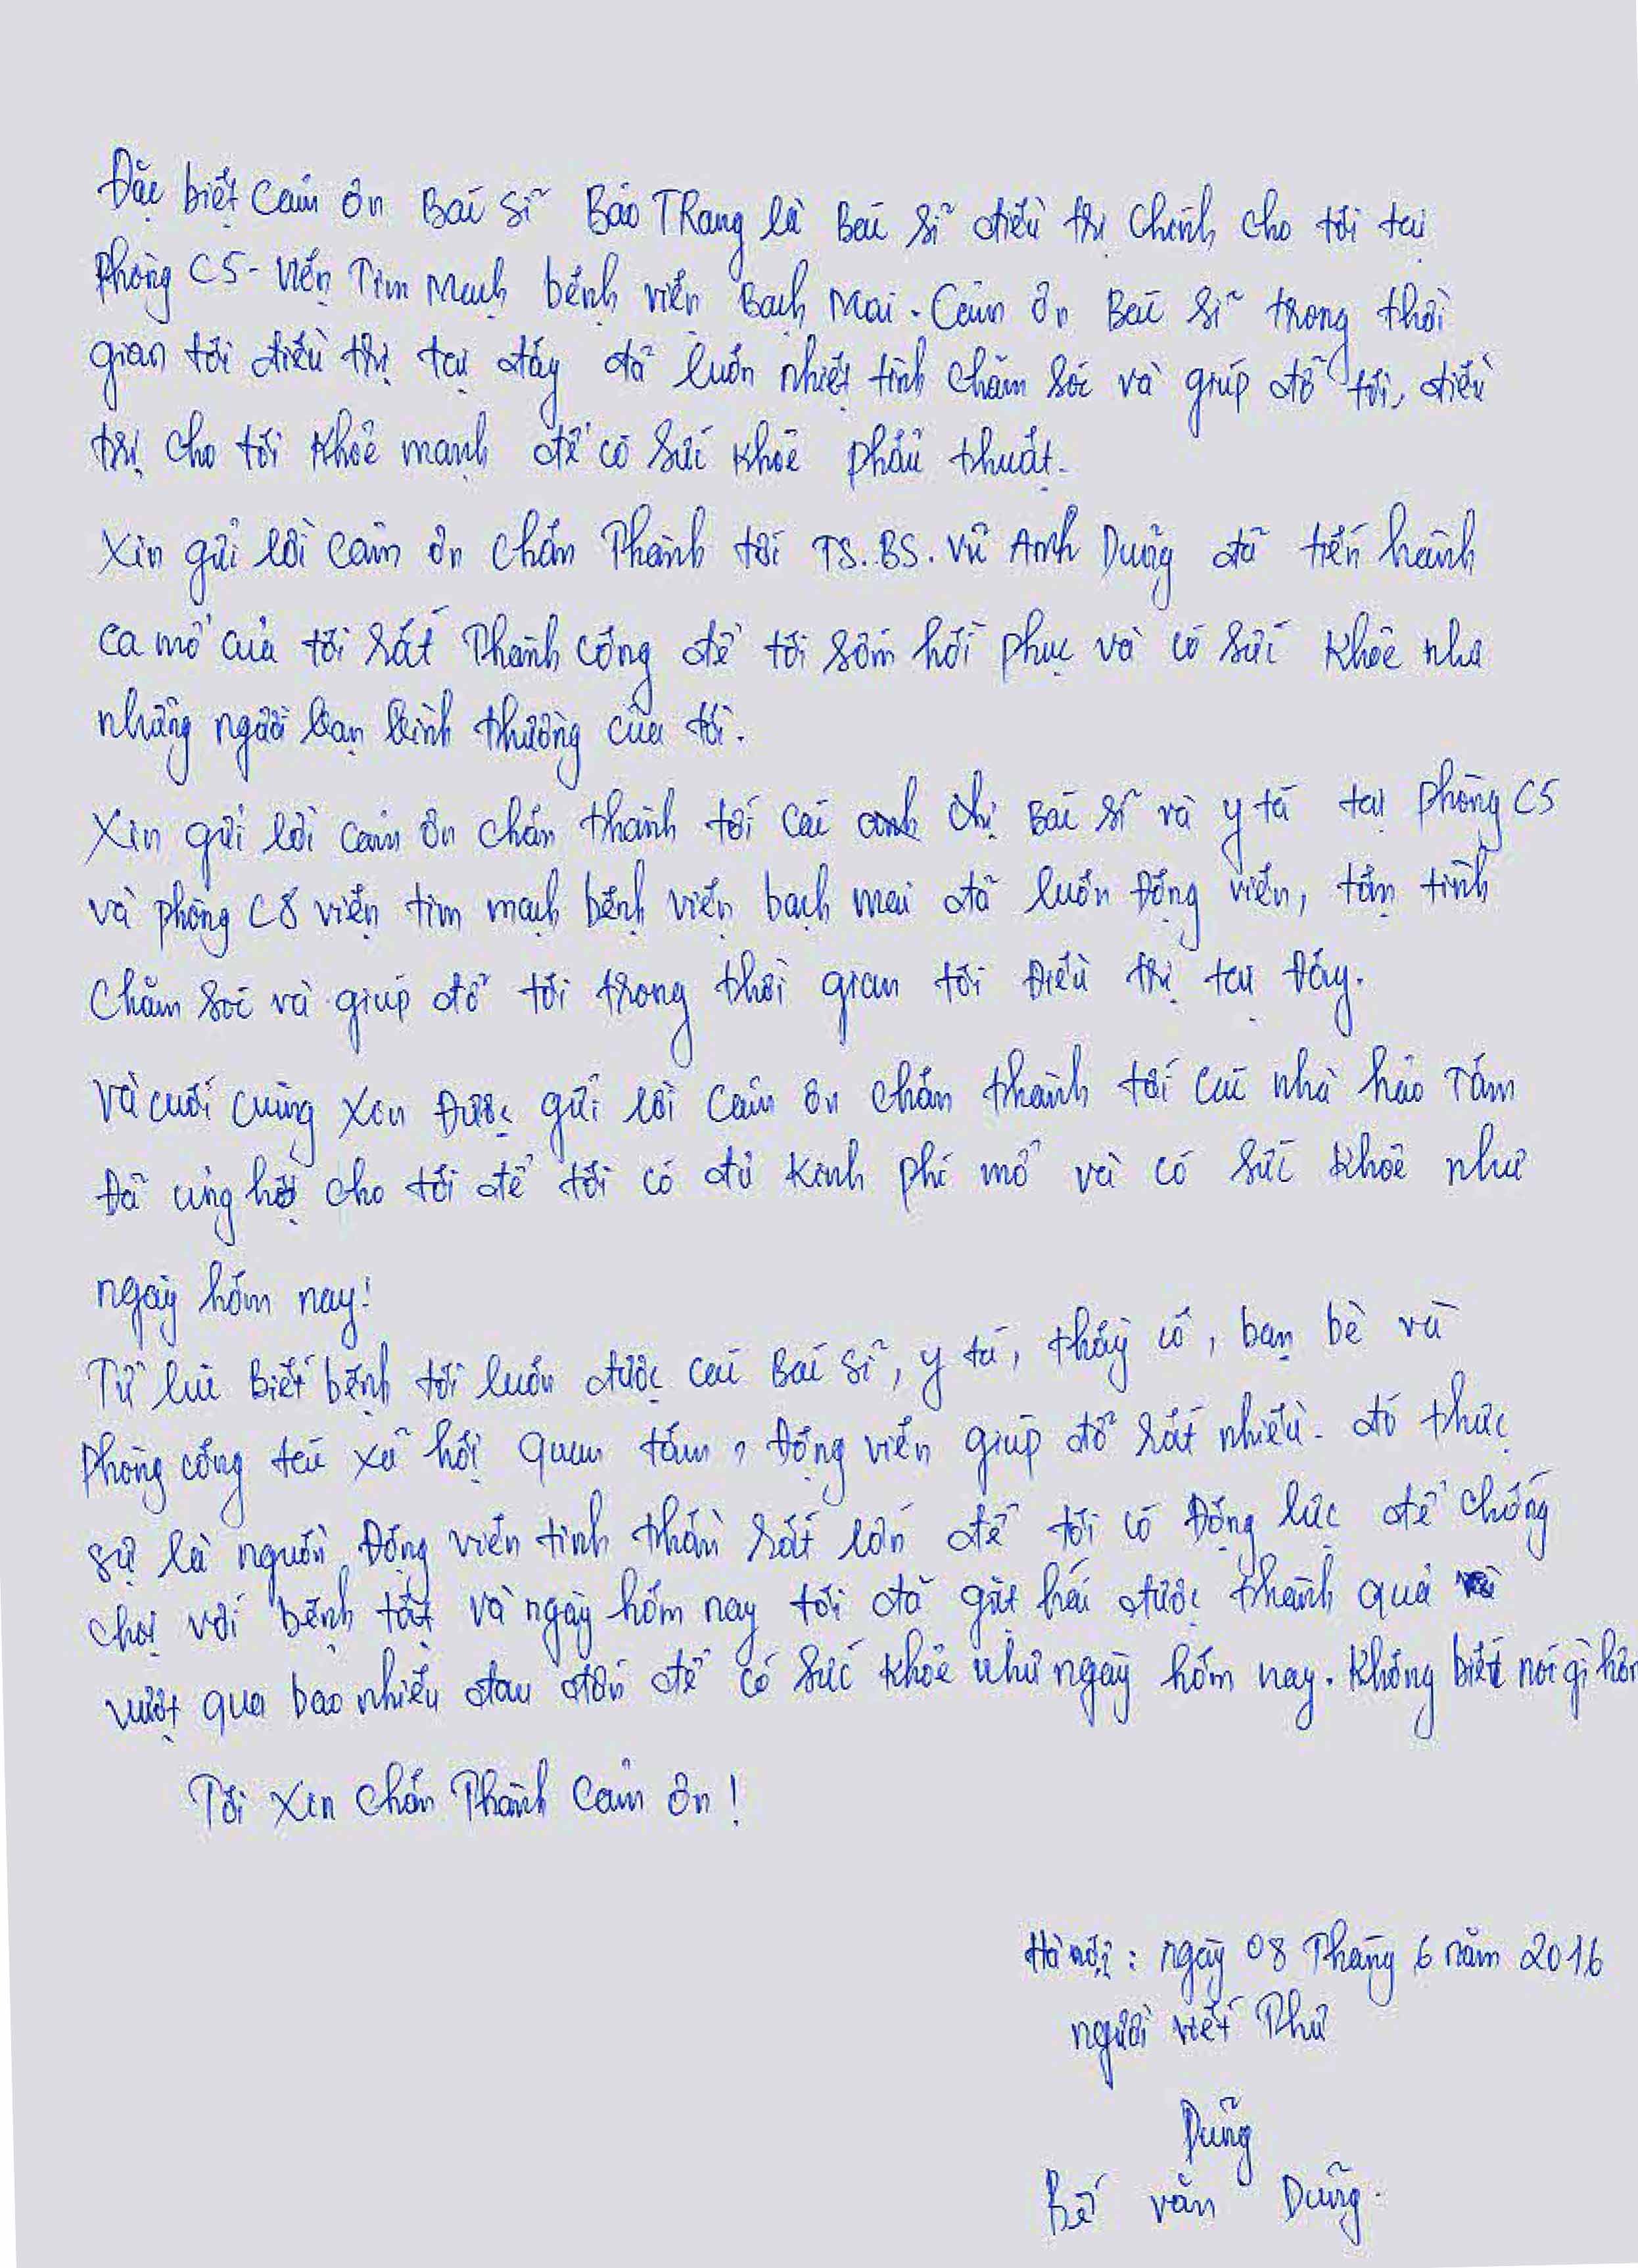 Đặc biệt cảm ơn Bác sĩ Bảo Trang là Bác sĩ điều trị chính cho tôi tại
phòng C5 - Viện Tim mạch bệnh viện Bạch Mai. Cảm ơn Bác sĩ trong thời
gian tôi điều trị tại đây đã luôn nhiệt tình chăm sóc và giúp đỡ tôi, điều
trị cho tôi khỏe mạnh để có sức khỏe phẫu thuật.
Xin gửi lời cảm ơn chân Thành tới TS.BS. Vũ Anh Dũng đã tiến hành
ca mổ của tôi rất Thành công để tôi sớm hồi phục và có sức khỏe như
những người bạn bình thường của tôi.
Xin gửi lời cảm ơn chân thành tới các anh chị Bác sĩ và y tá tại phòng C5
và phòng C8 viện tim mạch bệnh viện bạch mai đã luôn Động viên, tận tình
Chăm sóc và giúp đỡ tôi trong thời gian tôi Điều trị tại Đây.
Và cuối cùng xin Được gửi lời cảm ơn chân thành tới các nhà hảo Tâm
Đã ủng hộ cho tôi để tôi có đủ kinh phí mổ và có sức khỏe như
ngày hôm nay!
Từ lúc Biết bệnh tôi luôn được các Bác sĩ, y tá, thầy cô, bạn bè và
Phòng công tác xã hội quan tâm, Động viên giúp đỡ rất nhiều. đó thực
sự là nguồn Động viên tinh thần rất lớn để tôi có Động lực để chống
chọi với bệnh tật và ngày hôm nay tôi đã gặt hái được thành quả
vượt qua bao nhiêu đau đớn để có sức khỏe như ngày hôm nay. Không biết nói gì hơn
Tôi xin chân Thành cảm ơn!
Hà nội: ngày 08 Tháng 6 năm 2016
người viết Thư
Dũng
Bế văn Dũng.